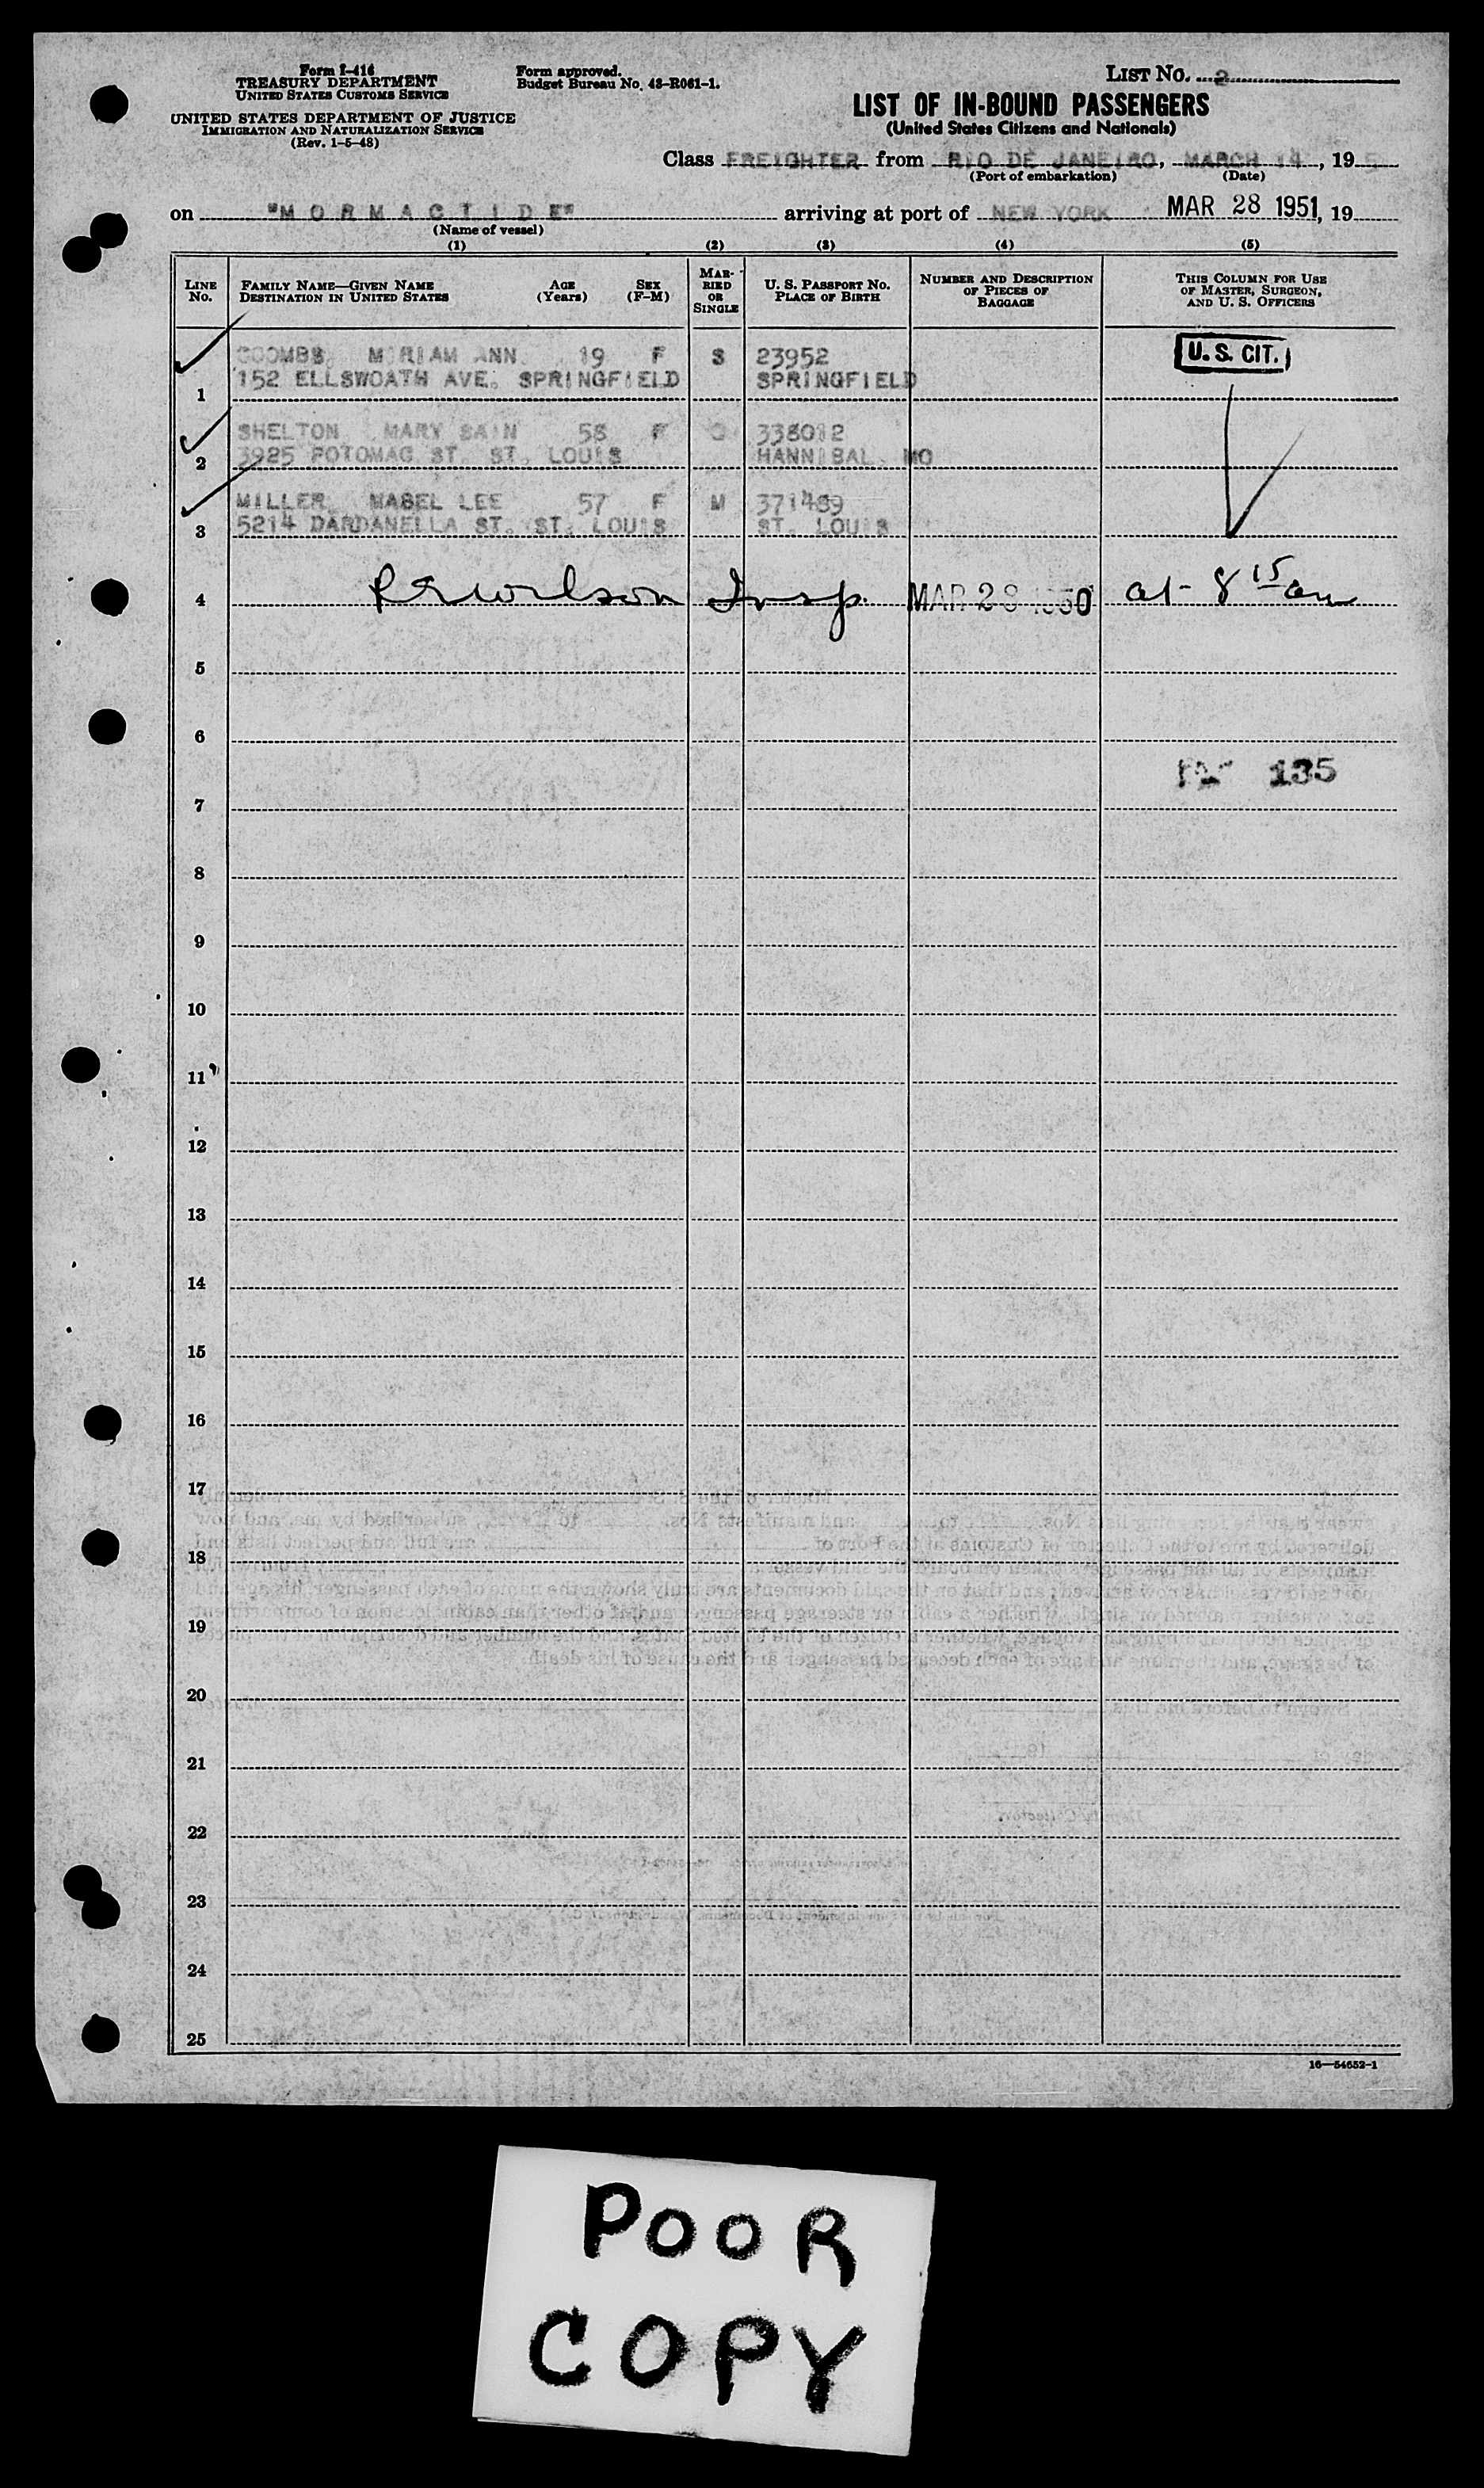 Form I-416
TREASURY DEPARTMENT
UNITED STATES CUSTOMS SERVICE
UNITED STATES DEPARTMENT OF JUSTICE
IMMIGRATION AND NATURALIZATION SERVICE
(Rev. 1-5-48)
Form approved.
Budget Bureau No. 43-R061-1.
LIST No. 2
LIST OF IN-BOUND PASSENGERS
(United States Citizens and Nationals)
Class FREIGHTER from RIO DE JANEIRO, MARCH 14, 195
(Port of embarkation) (Date)
on "MORMACTIDE" arriving at port of NEW YORK MAR 28 1951, 19
(Name of vessel)
(1) (2) (3) (4) (5)
LINE No. FAMILY NAME—GIVEN NAME DESTINATION IN UNITED STATES AGE (Years) SEX (F-M) MARRIED OR SINGLE U. S. PASSPORT No. PLACE OF BIRTH NUMBER AND DESCRIPTION OF PIECES OF BAGGAGE THIS COLUMN FOR USE OF MASTER, SURGEON, AND U. S. OFFICERS
COOMBS, MIRIAM ANN 19 F S 23952 U. S. CIT.
1 152 ELLSWOATH AVE. SPRINGFIELD SPRINGFIELD
SHELTON MARY BAIN 58 F
2 3925 POTOMAC ST. ST. LOUIS HANNIBAL, MO
MILLER, MABEL LEE 57 F M 371489
3 5214 DARDANELLA ST. ST. LOUIS ST. LOUIS
4 Wilson Insp. MAR 28 1950 at 8 15 am
5
6
135
7
8
9
10
11
12
13
14
15
16
17
18
19
20
21
22
23
24
25
16—54652-1
POOR
COPY